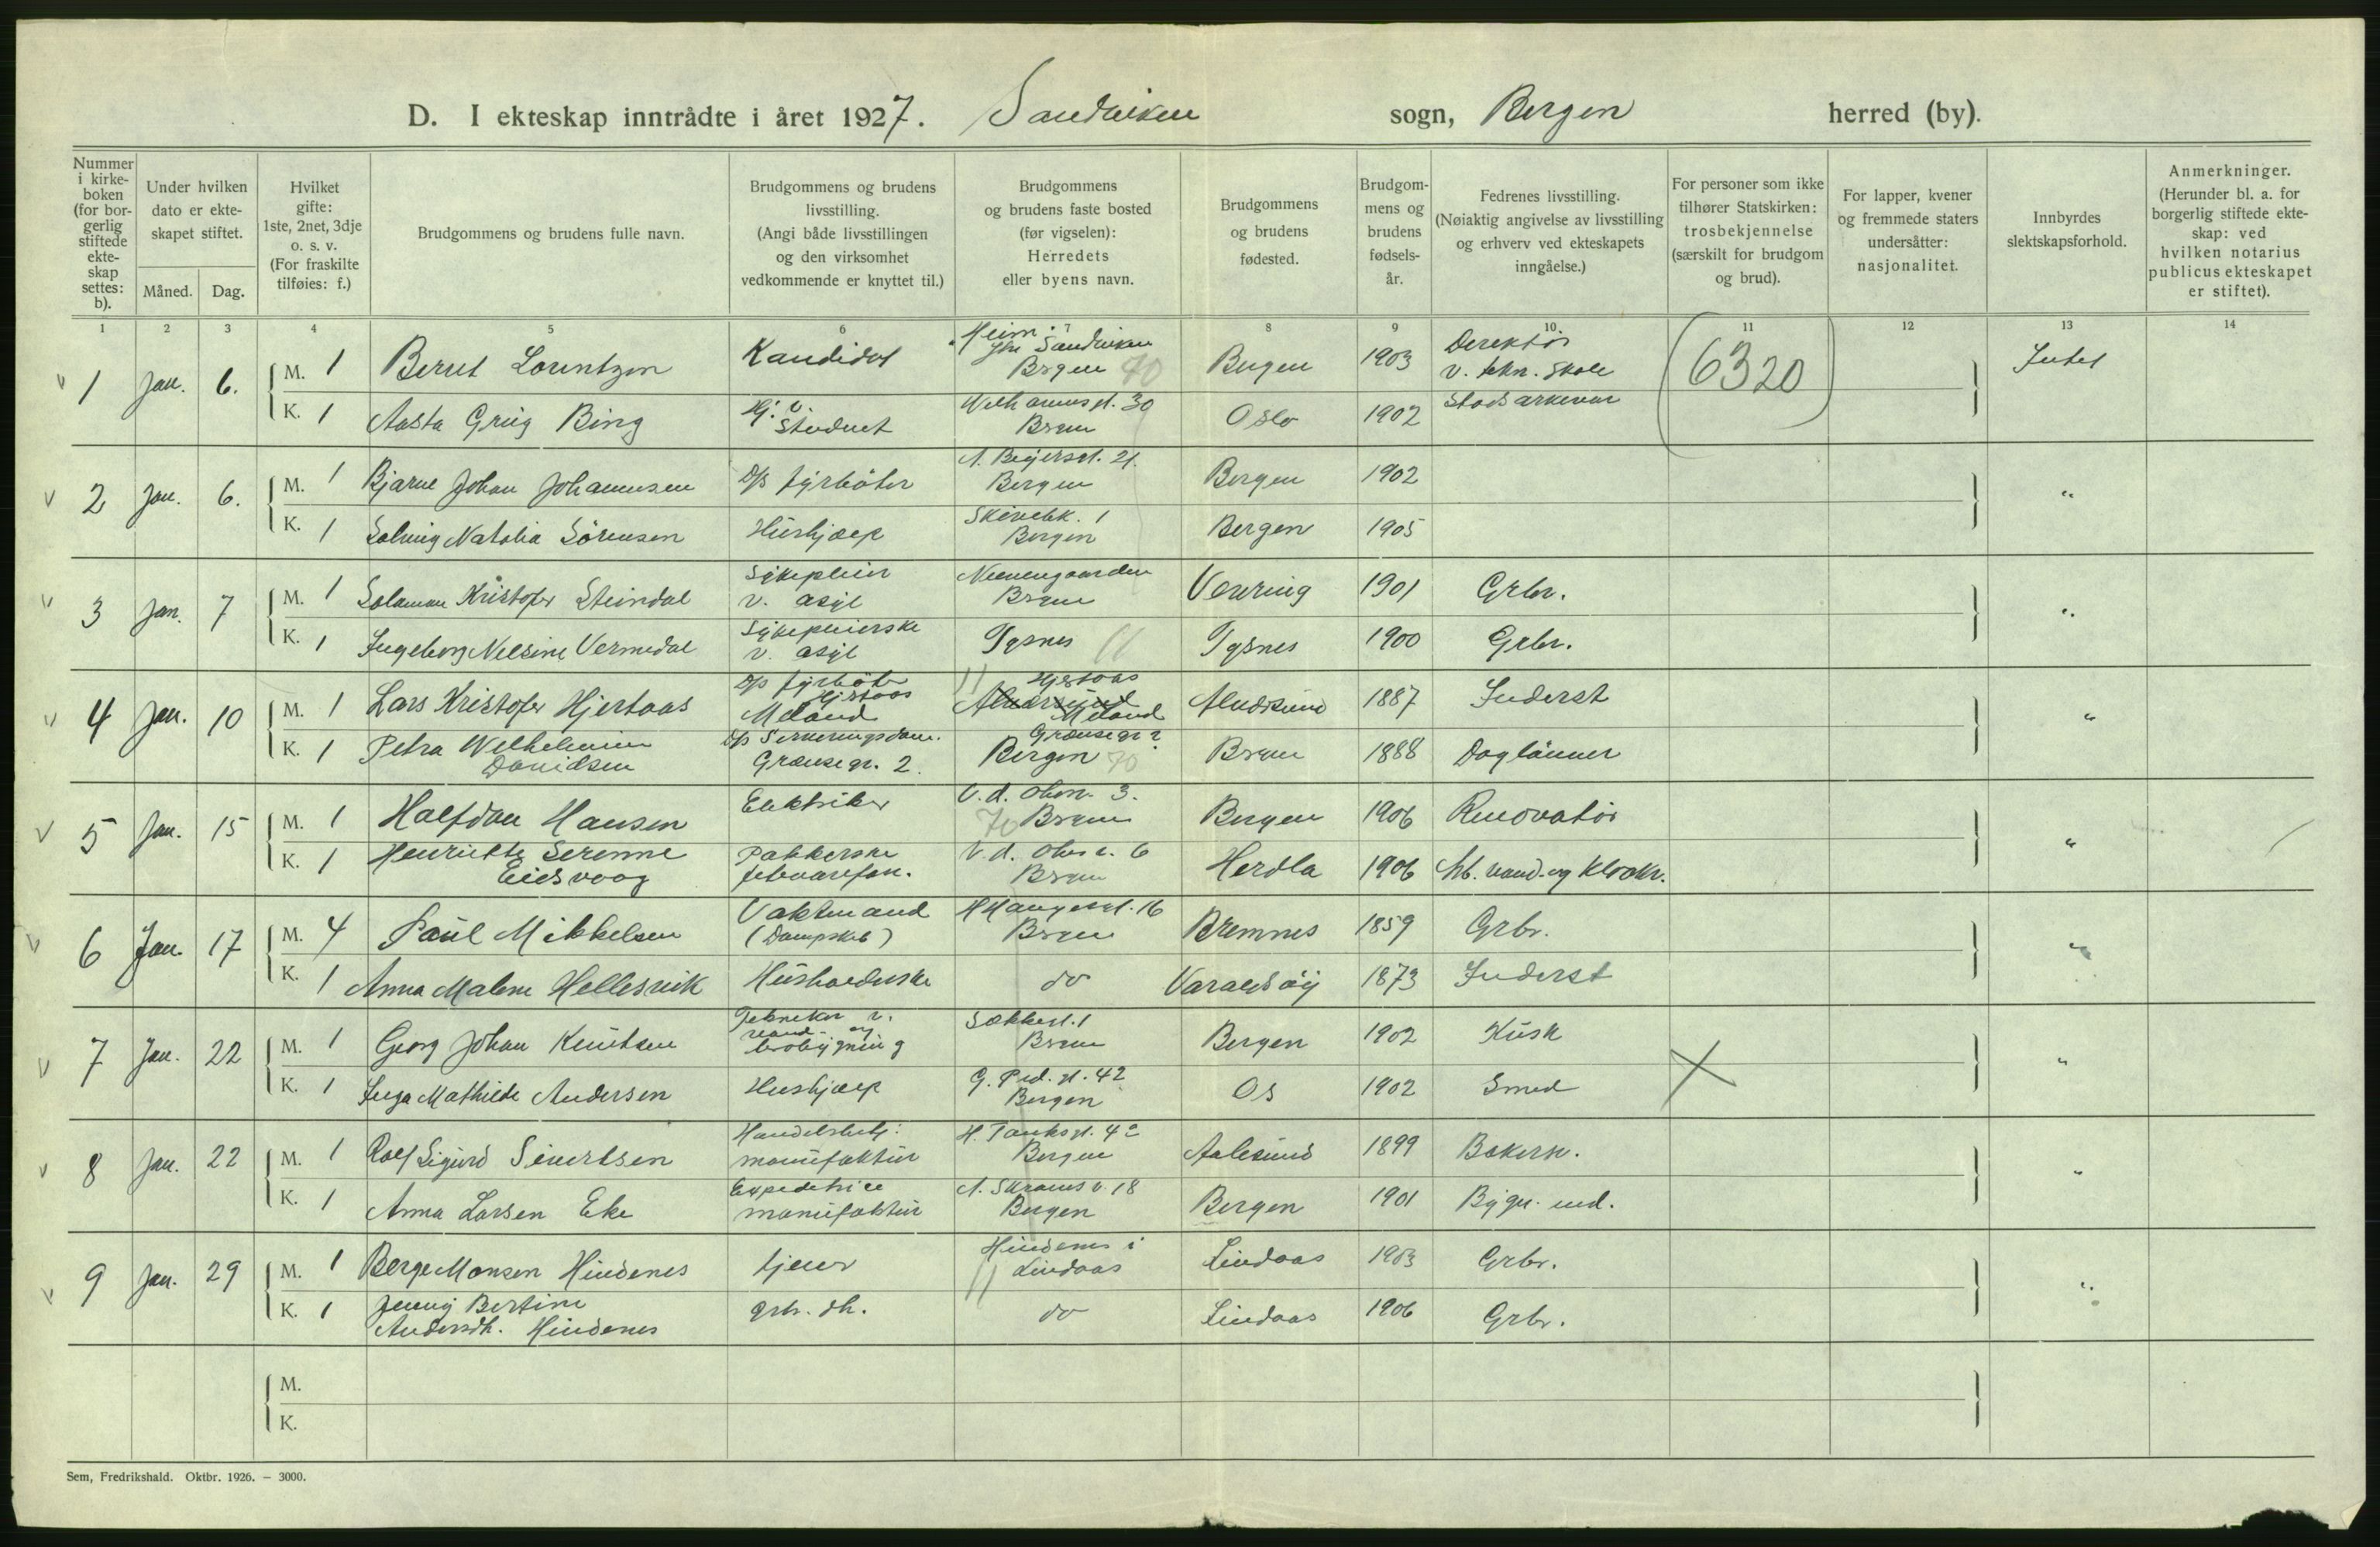 D. I ekteskap inntrådte i året 1927. Sandviken sogn, Bergen herred (by).
Nummer i kirke-boken (for bor-gerlig stiftede ekte-skap settes: b).
Under hvilken dato er ekte-skapet stiftet.
Måned. Dag.
Hvilket gifte: 1ste, 2net, 3dje o. s. v. (For fraskilte tilføies: f.)
Brudgommens og brudens fulle navn.
Brudgommens og brudens livsstilling. (Angi både livsstillingen og den virksomhet vedkommende er knyttet til.)
Brudgommens og brudens faste bosted (før vigselen): Herredets eller byens navn.
Brudgommens og brudens fødested.
Brudgom-mens og brudens fødsels-år.
Fedrenes livsstilling. (Nøiaktig angivelse av livsstilling og erhverv ved ekteskapets inngåelse.)
For personer som ikke tilhører Statskirken: trosbekjennelse (særskilt for brudgom og brud).
For lapper, kvener og fremmede staters undersåtter: nasjonalitet.
Innbyrdes slektskapsforhold.
Anmerkninger. (Herunder bl. a. for borgerlig stiftede ekte-skap: ved hvilken notarius publicus ekteskapet er stiftet).
1 2 3 4 5 6 7 8 9 10 11 12 13 14
1 Jan. 6. M. 1 Bernt Lorentzen Kandidat Sandviken Brgen 70 Bergen 1903 Direktör v. tekn. skole (6320) Intet
K. 1 Aasta Grieg Bing Student 30 Brgen Oslo 1902 Stadsarkivar
2 Jan. 6. M. 1 Bjarne Johan Johannesen D/s fyrböter A. Beyersgt. 21. Bergen Bergen 1902 "
K. 1 Solveig Natalia Sörensen Hushjælp Skivebk. 1 Bergen Bergen 1905
3 Jan. 7 M. 1 Salamon Kristofer Steindal Sykepleier v. asyl Neevengaarden Brgen Vevring 1901 Grbr. "
K. 1 Ingeborg Nelsine Vermedal Sykepleierske v. asyl Tysnes 11 Tysnes 1900 Grbr.
4 Jan. 10 M. 1 Lars Kristofer Hjertaas D/s fyrböter Hjertaas Meland 11 Hjertaas Alversund Meland Alversund 1887 Inderst "
K. 1 Petra Wilhelmine Davidsen D/s Serveringsdame. Grænsegr. 2. Grænsegr 2 Bergen 70 Brgen 1888 Daglönner
5 Jan. 15 M. 1 Halfdan Hansen Elektriker V. d. Ohesv. 3. 70 Brgen Bergen 1906 Renovatör "
K. 1 Henriette Serenne Eidsvaag Pakkerske V. d. Ohes v. 6 Brgen Herdla 1906 Arb. vand- og kloakv.
6 Jan. 17 M. 4 Paul Mikkelsen Vaktmand (Dampskib) H Haugesgt. 16 Brgen Bremnes 1859 Grbr. "
K. 1 Anna Malene Hellesvik Husholderske do Varaldsöy 1873 Inderst
7 Jan. 22 M. 1 Georg Johan Knutsen Tekniker v. vand- og brobygning Sækkegt. 1 Brgen Bergen 1902 Kusk "
K. 1 Inga Mathilde Andersen Hushjælp G. Præd. gt. 42 Bergen Os 1902 Smed
8 Jan. 22 M. 1 Rolf Sigurd Sivertsen Handelsbetj: manufaktur H. Tanksgt. 42 Bergen Aalesund 1899 Bakerm. "
K. 1 Anna Larsen Eke Expeditrice manufaktur A. Skrams v. 18 Bergen Bergen 1901 Bygn. med.
9 Jan. 29 M. 1 Berge Monsen Hindenes tjener Hindenes i 11 Lindaas Lindaas 1903 Grbr. "
K. 1 Jenny Bertine Andersdt. Hindenes grb. dt. do Lindaas 1906 Grbr.
M.
K.
Sem, Fredrikshald. Oktbr. 1926. – 3000.